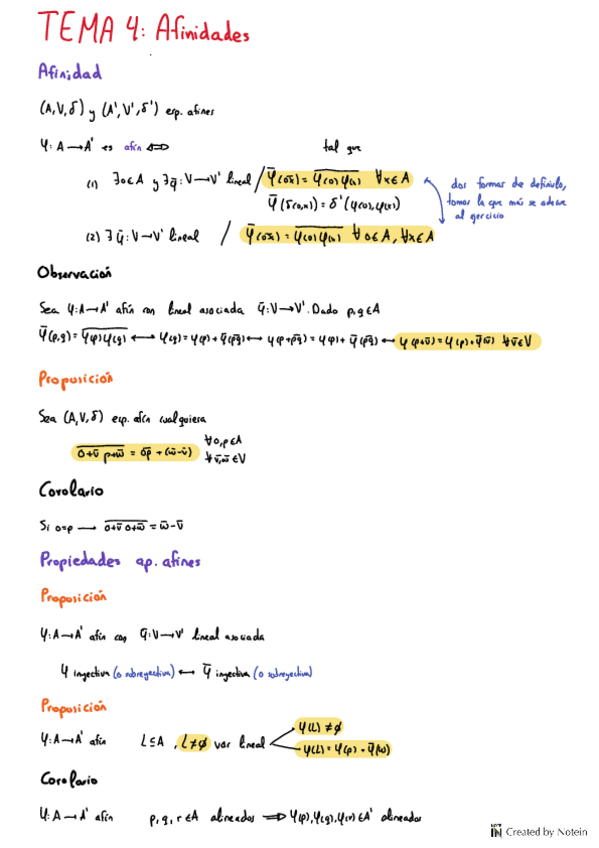 TEMA 4: Afinidades
Afinidad
(A,V,δ) y (A',V',δ') esp. afines
φ: A→A' es afín ⇔ tal que
(1) ∃o∈A y ∃φ̄: V→V' lineal / φ̄(ox̄) = φ(o)φ(x) ∀x∈A
φ̄(δ(o,x)) = δ'(φ(o),φ(x))
dos formas de definirlo,
tomar la que más se adecue
al ejercicio
(2) ∃ φ̄: V→V' lineal / φ̄(ox̄) = φ(o)φ(x) ∀o∈A, ∀x∈A
Observación
Sea φ: A→A' afín con lineal asociada φ̄: V→V'. Dado p,q∈A
φ̄(p,q) = φ(p)φ(q) ↔ φ(q) = φ(p) + φ̄(pq) ↔ φ(p+pq) = φ(p) + φ̄(pq) ↔ φ(p+v̄) = φ(p) + φ̄(v̄) ∀v̄∈V
Proposición
Sea (A,V,δ) esp. afín cualquiera
o+v̄ p+w̄ = op + (w̄-v̄) ∀o,p∈A
∀v̄,w̄∈V
Corolario
Si o=p → o+v̄ o+w̄ = w̄-v̄
Propiedades ap. afines
Proposición
φ: A→A' afín con φ̄: V→V' lineal asociada
φ inyectiva (o sobreyectiva) ↔ φ̄ inyectiva (o sobreyectiva)
Proposición
φ(L) ≠ ∅
φ: A→A' afín L⊆A, L≠∅ var lineal
φ(L) = φ(p) + φ̄(W)
Corolario
φ: A→A' afín p,q,r∈A alineados ⇒ φ(p),φ(q),φ(r)∈A' alineados
Created by Notein